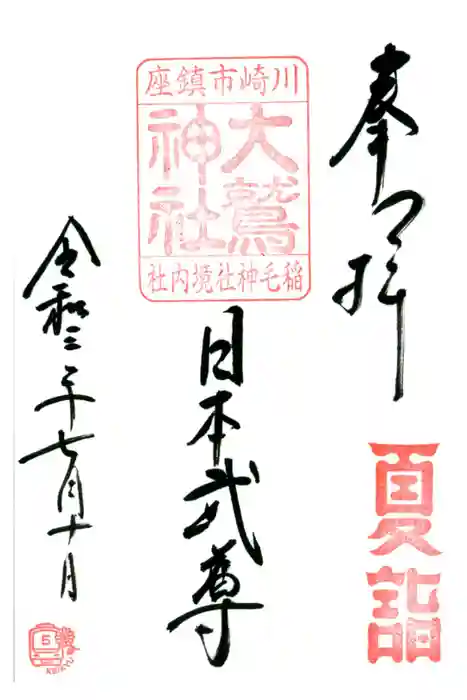 奉拝
夏詣
川崎市鎮座
大鷲
神社
稲毛神社境内社
日本武尊
令和三年七月十日
5